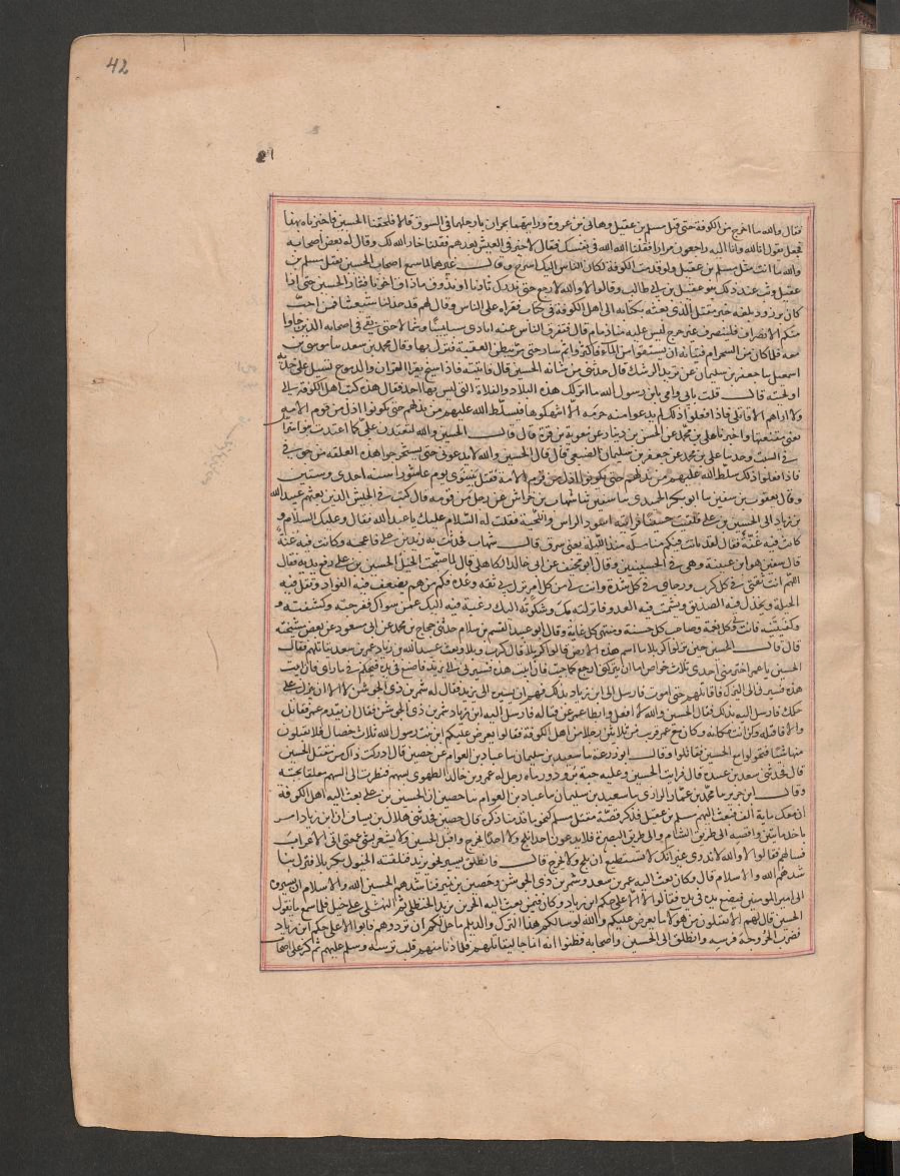 42
فقال والله ما اخرج من الكوفة حتى قتل مسلم بن عقيل وهانئ بن عروة ورايتهما يجران بارجلهما في السوق قالا فلحقنا الحسين فاخبرناه بهذا
فجعل يقول انا لله وانا اليه راجعون مرارا فقلنا الله الله في نفسك فقال لا خير في العيش بعدهم فقلنا خار الله لك وقال له بعض اصحابه
والله ما انت مثل مسلم بن عقيل ولو قدمت الكوفة لكان الناس اليك اسرع وقال غيرهما لما سمع اصحاب الحسين بقتل مسلم بن
عقيل وثب عند ذلك بنو عقيل بن ابي طالب وقالوا لا والله لا نرجع حتى ندرك ثارنا او نذوق ما ذاق اخونا فسار الحسين حتى اذا
كان بزرود بلغه خبر مقتل الذي بعثه بكتابه الى اهل الكوفة في كتاب فقراه على الناس وقال لهم قد خذلنا شيعتنا فمن احب
منكم الانصراف فلينصرف غير حرج ليس عليه منا ذمام قال فتفرق الناس عنه ايادي سبا يمينا وشمالا حتى بقي في اصحابه الذين جاوا
معه فلما كان من السحر امر فتيانه ان يستقوا من الماء فاكثروا ثم سار حتى مر ببطن العقبة فنزل بها وقال محمد بن سعد ثنا موسى بن
اسمعيل ثنا جعفر بن سليمان عن يزيد الرشك قال حدثني من شافه الحسين قال فاتيته فاذا شيخ يقرا القران والدموع تسيل على خده
او لحيته قال قلت بابي وامي يا بن رسول الله ما انزلك هذه البلاد والفلاة التي ليس بها احد فقال هذه كتب اهل الكوفة الي
ولا اراهم الا قاتلي فاذا فعلوا ذلك لم يدعوا لله حرمة الا انتهكوها فسلط الله عليهم من يذلهم حتى يكونوا اذل من فرم الامة
يعني مقنعتها واخبرنا علي بن محمد عن الحسن بن دينار عن معوية بن قرة قال قال الحسين والله لتعتدن علي كما اعتدت بنو اسرائيل
في السبت وحدثنا علي بن محمد عن جعفر بن سليمان الضبعي قال قال الحسين والله لا يدعوني حتى يستخرجوا هذه العلقة من جوفي
فاذا فعلوا ذلك سلط الله عليهم من يذلهم حتى يكونوا اذل من فرم الامة فقتل بنينوى يوم عاشورا سنه احدى وستين
وقال يعقوب بن سفين ثنا ابو بكر الحميدي ثنا سفين ثنا شهاب بن خراش عن رجل من قومه قال كنت في الجيش الذين بعثهم عبيد الله
بن زياد الى الحسين بن علي فلقيت حسينا فرايته اسود الراس واللحية فقلت له السلام عليك يا عبد الله فقال وعليك السلام و
كانت فيه غنة فقال لقد باتت فيكم منا سلة منذ الليلة يعني سرق قال شهاب فحدثت به زيد بن علي فاعجبه وكانت فيه غنة
قال سفين هو ابن عيينة وهي في الحسينيين وقال ابو مخنف عن ابي خالد الكاهلي قال لما صبحت الخيل الحسين بن علي رفع يديه فقال
اللهم انت ثقتي في كل كرب ورجائي في كل شدة وانت لي من كل امر نزل بي ثقة وعدة فكم من هم يضعف فيه الفواد وتقل فيه
الحيلة ويخذل فيه الصديق ويشمت فيه العدو فانزلته بك وشكوته اليك رغبة فيه اليك عمن سواك ففرجته وكشفته و
وكفيتنيه فانت لي ولي كل نعمة وصاحب كل حسنة ومنتهى كل غاية وقال ابو عبيد القسم بن سلام حدثني حجاج بن محمد عن ابي معشر عن بعض مشيخته
قال قال الحسين حين نزلوا كربلا ما اسم هذه الارض قالوا كربلا قال كرب وبلا وبعث عبيد الله بن زياد عمر بن سعد يقاتلهم فقال
الحسين يا عمر اختر مني احدى ثلاث خصال اما ان تتركني ارجع كما جيت فان ابيت هذه فسيرني الى يزيد فاضع يدي في يده فيحكم في ما راى فان ابيت
هذه فسيرني الى الترك فاقاتلهم حتى اموت فارسل الى ابن زياد بذلك فهم ان يسيره الى يزيد فقال له شمر بن ذي الجوشن لا الا ان ينزل على
حكمك فارسل اليه بذلك فقال الحسين والله لا افعل وابطا عمر عن قتاله فارسل اليه ابن زياد شمر بن ذي الجوشن فقال ان يقدم عمر فقاتل
والا فاقتله وكن انت مكانه وكان مع عمر قريب من ثلاثين رجلا من اهل الكوفة فقالوا يعرض عليكم ابن بنت رسول الله ثلاث خصال فلا تقبلون
منها شيئا فتحولوا مع الحسين فقاتلوا وقال ابو زرعة ثنا سعيد بن سليمان ثنا عباد بن العوام عن حصين قال ادركت ذاك من مقتل الحسين
قال فحدثني سعد بن عبيدة قال فرايت الحسين وعليه جبة برود ورماه رجل له عمرو بن خالد الطهوي بسهم فنظرت الى السهم معلقا بجبته
وقال ابن جرير ثنا محمد بن عمار الرازي ثنا سعيد بن سليمان ثنا عباد بن العوام ثنا حصين ان الحسين بن علي بعث اليه اهل الكوفة
ان معك ماية الف فبعث اليهم مسلم بن عقيل فذكر قصة مقتل مسلم كنحو ما تقدم ذكره قال حصين فحدثني هلال بن يساف ان ابن زياد امر
باخذ ما بين واقصة الى طريق الشام والى طريق البصرة فلا يدعون احدا يلج ولا احدا يخرج واقبل الحسين ولا يشعر بشي حتى اتى الاعراب
فسالهم فقالوا لا والله لا ندري غير انك لا تستطيع ان تلج ولا تخرج قال فانطلق يسير نحو يزيد فتلقته الخيول بكربلا فنزل يناشدهم
الله والاسلام قال وكان بعث اليه عمر بن سعد وشمر بن ذي الجوشن وحصين بن نمير فناشدهم الحسين الله والاسلام ان يسيروه
الى امير المومنين فيضع يده في يده فقالوا لا الا على حكم ابن زياد وكان فيمن بعث اليه الحر بن يزيد الحنظلي ثم النهشلي على خيل فلما سمع ما يقول
الحسين قال لهم الا تقبلون من هولاء ما يعرض عليكم والله لو سالكم هذا الترك والديلم ما حل لكم ان تردوهم فابوا الا على حكم ابن زياد
فضرب الحر وجه فرسه وانطلق الى الحسين واصحابه فظنوا انه انما جا ليقاتلهم فلما دنا منهم قلب ترسه وسلم عليهم ثم كر على اصحاب